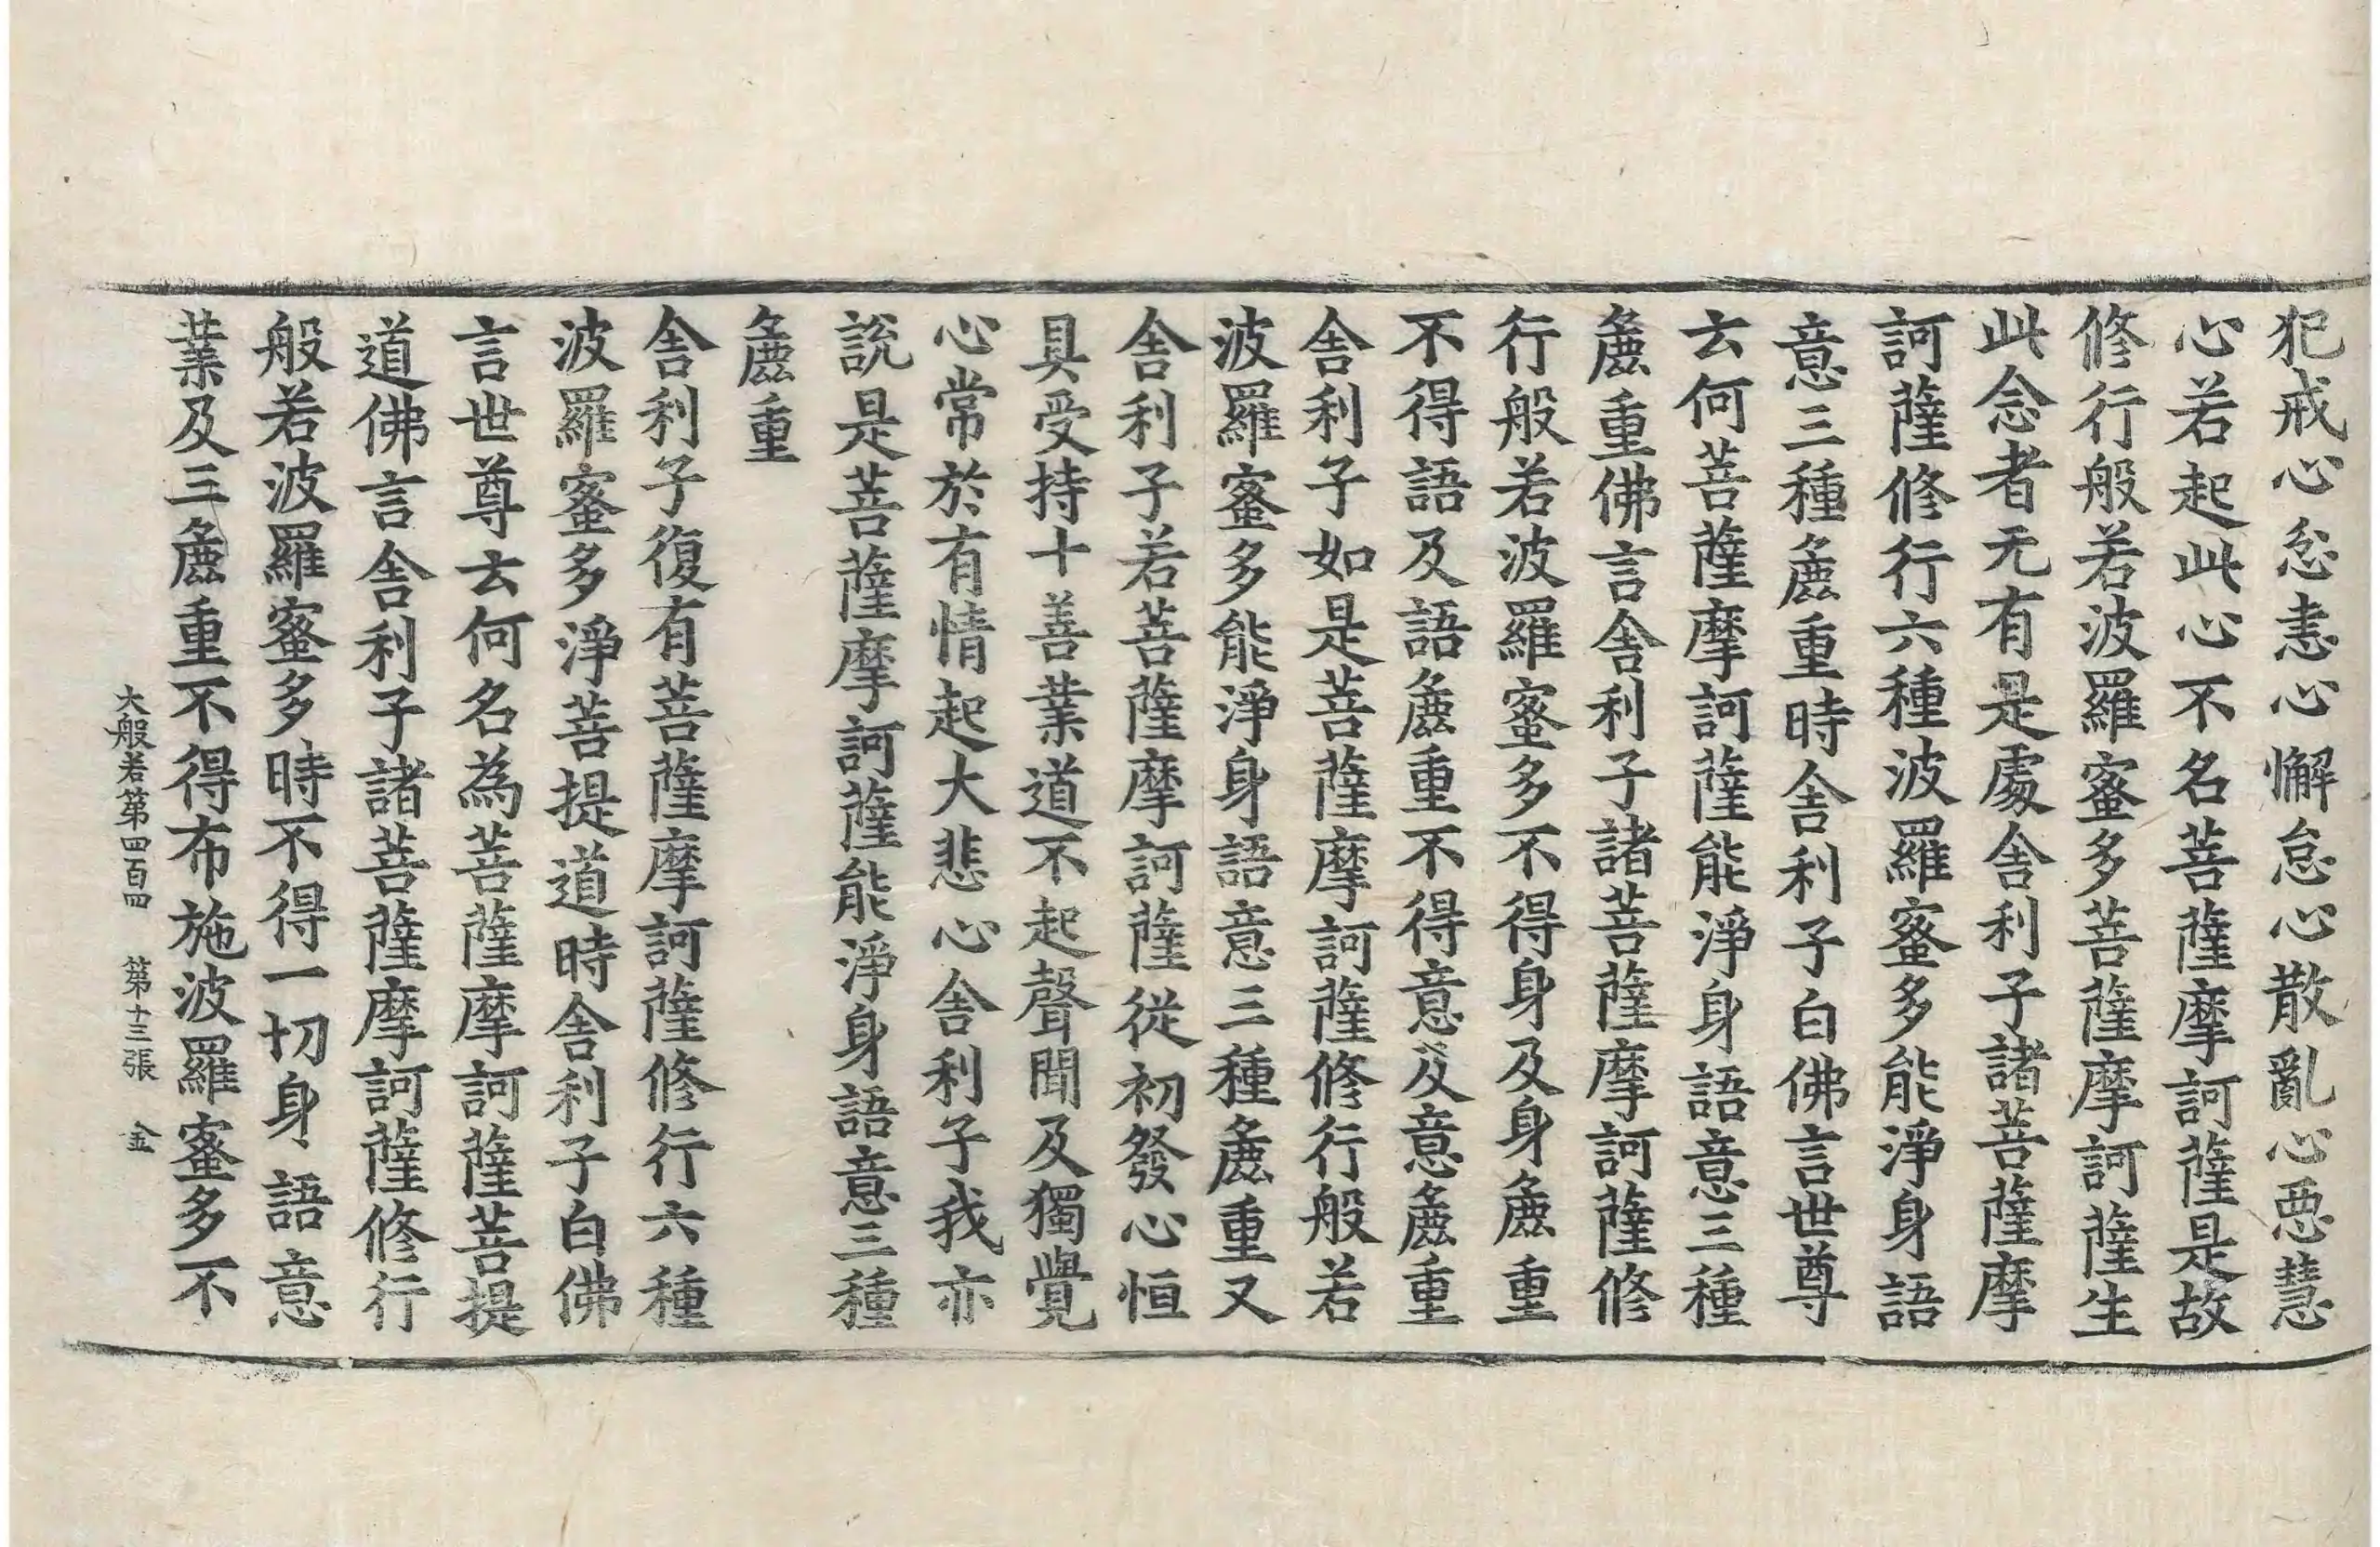 犯戒心忿恚心懈怠心散亂心惡慧
心若起此心不名菩薩摩訶薩是故
修行般若波羅蜜多菩薩摩訶薩生
此念者无有是處舍利子諸菩薩摩
訶薩修行六種波羅蜜多能淨身語
意三種麁重時舍利子白佛言世尊
云何菩薩摩訶薩能淨身語意三種
麁重佛言舍利子諸菩薩摩訶薩修
行般若波羅蜜多不得身及身麁重
不得語及語麁重不得意及意麁重
舍利子如是菩薩摩訶薩修行般若
波羅蜜多能淨身語意三種麁重又
舍利子若菩薩摩訶薩從初發心恒
具受持十善業道不起聲聞及獨覺
心常於有情起大悲心舍利子我亦
說是菩薩摩訶薩能淨身語意三種
麁重
舍利子復有菩薩摩訶薩修行六種
波羅蜜多淨菩提道時舍利子白佛
言世尊云何名為菩薩摩訶薩菩提
道佛言舍利子諸菩薩摩訶薩修行
般若波羅蜜多時不得一切身語意
業及三麁重不得布施波羅蜜多不
大般若第四百四 第十三張 金